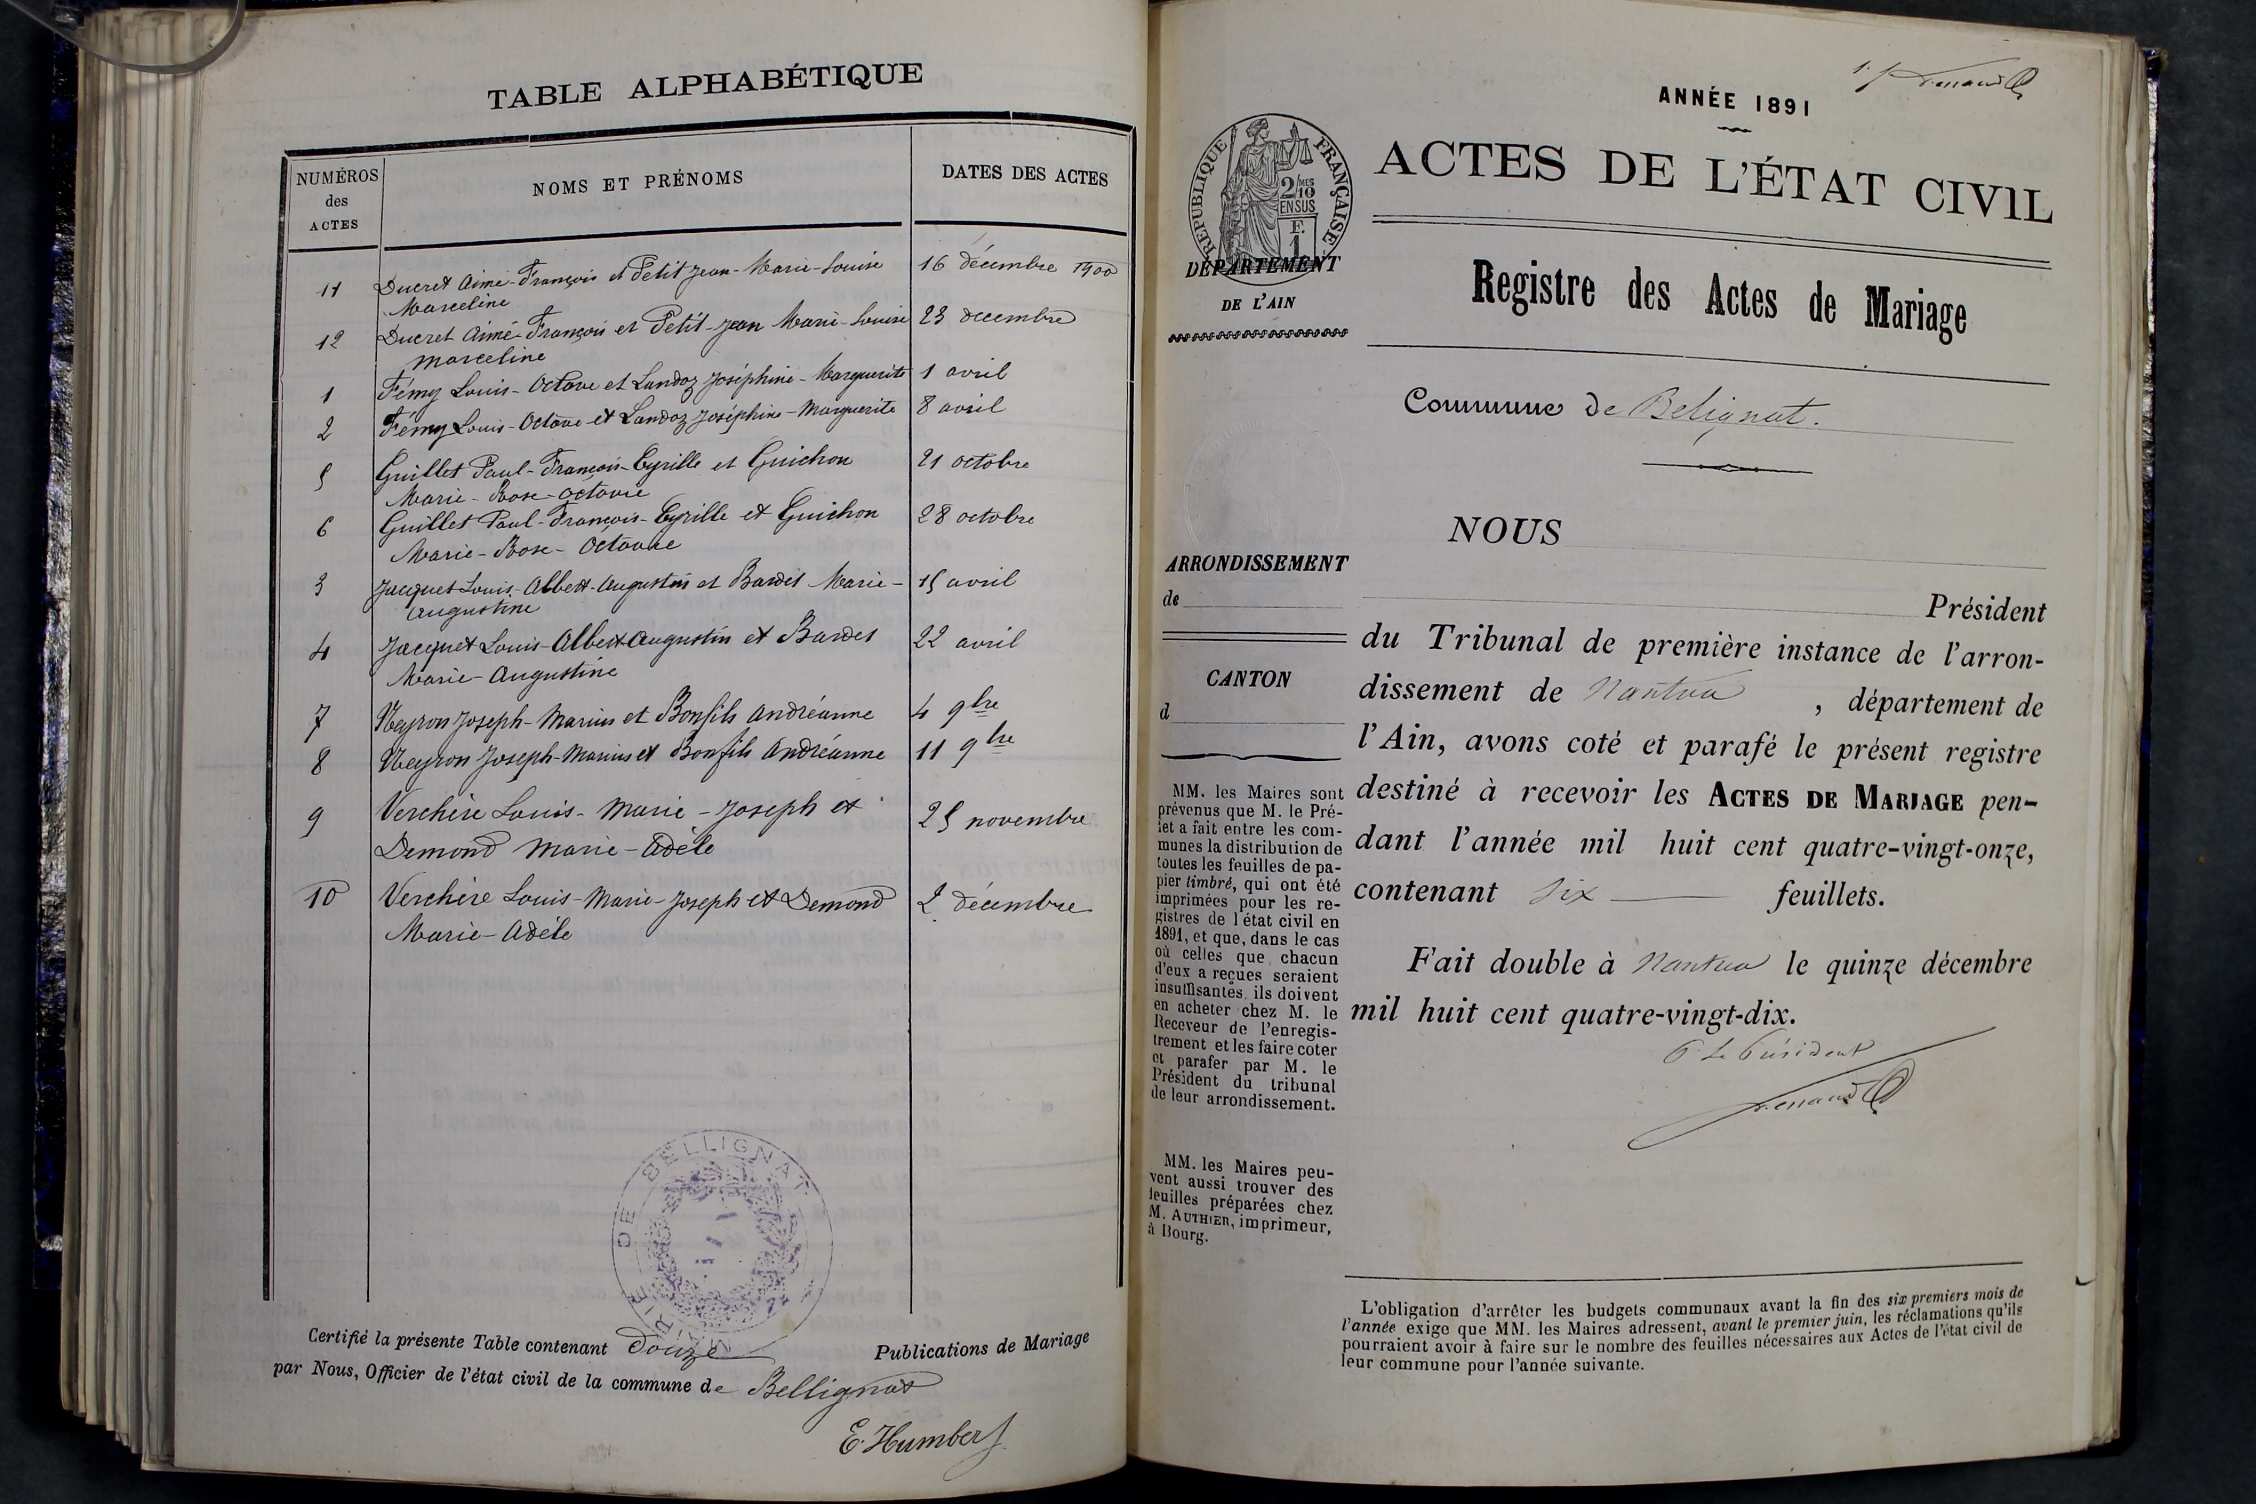 TABLE ALPHABÉTIQUE
NUMÉROS
des
ACTES
NOMS ET PRÉNOMS
DATES DES ACTES
11 Ducret Aimé-François et Petit Jean-Marie-Louise 16 décembre 1900
Marceline
12 Ducret Aimé-François et Petit-Jean Marie-Louise 23 décembre
Marceline
1 Fémy Louis-Octave et Landoz Joséphine-Marguerite 1 avril
2 Fémy Louis-Octave et Landoz Joséphine-Marguerite 8 avril
5 Guillet Paul-François-Cyrille et Guichon 21 octobre
Marie-Rose-Octavie
6 Guillet Paul-François-Cyrille et Guichon 28 octobre
Marie-Rose-Octavie
3 Jacquet Louis-Albert-Augustin et Bardet Marie- 15 avril
Augustine
4 Jacquet Louis-Albert-Augustin et Bardet 22 avril
Marie-Augustine
7 Veyron Joseph-Marius et Bonfils Andréanne 4 9bre
8 Veyron Joseph-Marius et Bonfils Andréanne 11 9bre
9 Verchère Louis-Marie-Joseph et 25 novembre
Demond Marie-Adèle
10 Verchère Louis-Marie-Joseph et Demond 2 décembre
Marie-Adèle
MAIRIE DE BELLIGNAT
Certifié la présente Table contenant Douze Publications de Mariage
par Nous, Officier de l'état civil de la commune de Bellignat
E. Humbert
ANNÉE 1891
ACTES DE L'ÉTAT CIVIL
RÉPUBLIQUE FRANÇAISE
2/10MES
EN SUS
F.
1
DÉPARTEMENT
DE L'AIN
Registre des Actes de Mariage
Commune de Belignat.
ARRONDISSEMENT
de
CANTON
d
NOUS
Président
du Tribunal de première instance de l'arron-
dissement de Nantua, département de
l'Ain, avons coté et parafé le présent registre
destiné à recevoir les ACTES DE MARIAGE pen-
dant l'année mil huit cent quatre-vingt-onze,
contenant six feuillets.
Fait double à Nantua le quinze décembre
mil huit cent quatre-vingt-dix.
P. Le Président
MM. les Maires sont
prévenus que M. le Pré-
fet a fait entre les com-
munes la distribution de
toutes les feuilles de pa-
pier timbré, qui ont été
imprimées pour les re-
gistres de l'état civil en
1891, et que, dans le cas
où celles que chacun
d'eux a reçues seraient
insuffisantes, ils doivent
en acheter chez M. le
Receveur de l'enregis-
trement et les faire coter
et parafer par M. le
Président du tribunal
de leur arrondissement.
MM. les Maires peu-
vent aussi trouver des
feuilles préparées chez
M. AUTHIER, imprimeur,
à Bourg.
L'obligation d'arrêter les budgets communaux avant la fin des six premiers mois de
l'année exige que MM. les Maires adressent, avant le premier juin, les réclamations qu'ils
pourraient avoir à faire sur le nombre des feuilles nécessaires aux Actes de l'état civil de
leur commune pour l'année suivante.